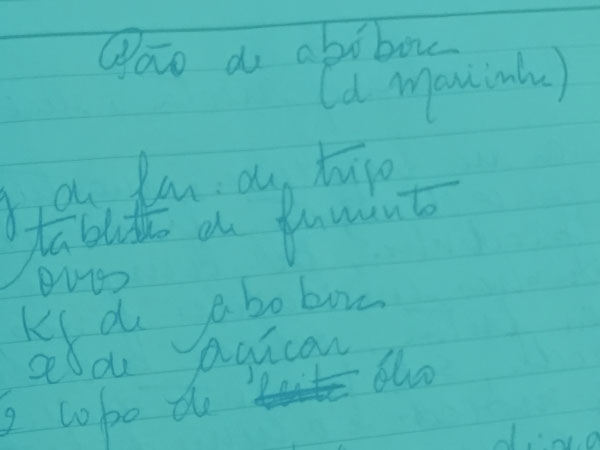 Pão de abóbora
(d Mariinha)
g de far. de trigo
tabletes de fermento
ovos
Kg de abobora
x de açúcar
2 copo de óleo